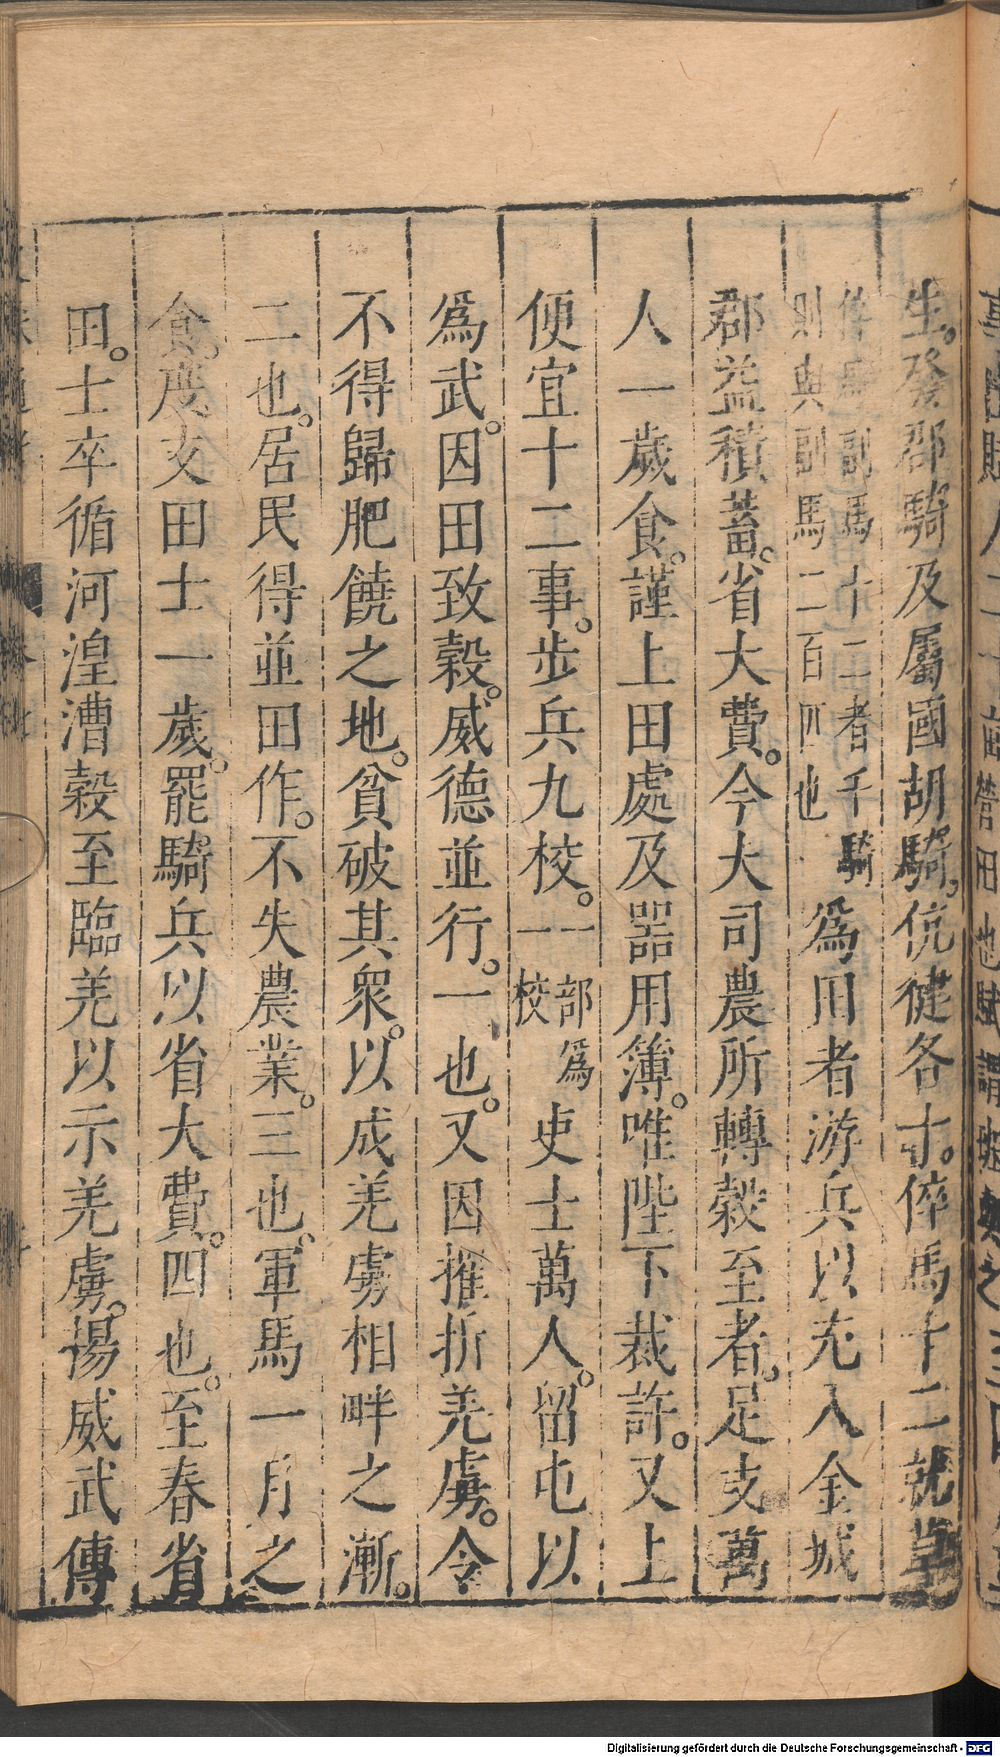 生。發郡騎及屬國胡騎。伉健各十。倅馬十二就草
倅馬副馬十二者千騎
則與副馬二百匹也爲田者游兵以充入金城
郡益積蓄。省大費。今大司農所轉榖至者。足支萬
人一歲食。謹上田處及器用簿。唯陛下裁許。又上
便宜十二事。步兵九校。一部爲一校吏士萬人。留屯以
爲武。因田致榖。威德並行。一也。又因摧折羌虜。令
不得歸肥饒之地。貧破其衆。以成羌虜相畔之漸。
二也。居民得並田作。不失農業。三也。軍馬一月之
食。度支田士一歲。罷騎兵以省大費。四也。至春省
田。士卒循河湟漕榖至臨羌以示羌虜。揚威武傳
Digitalisierung gefördert durch die Deutsche Forschungsgemeinschaft - DFG